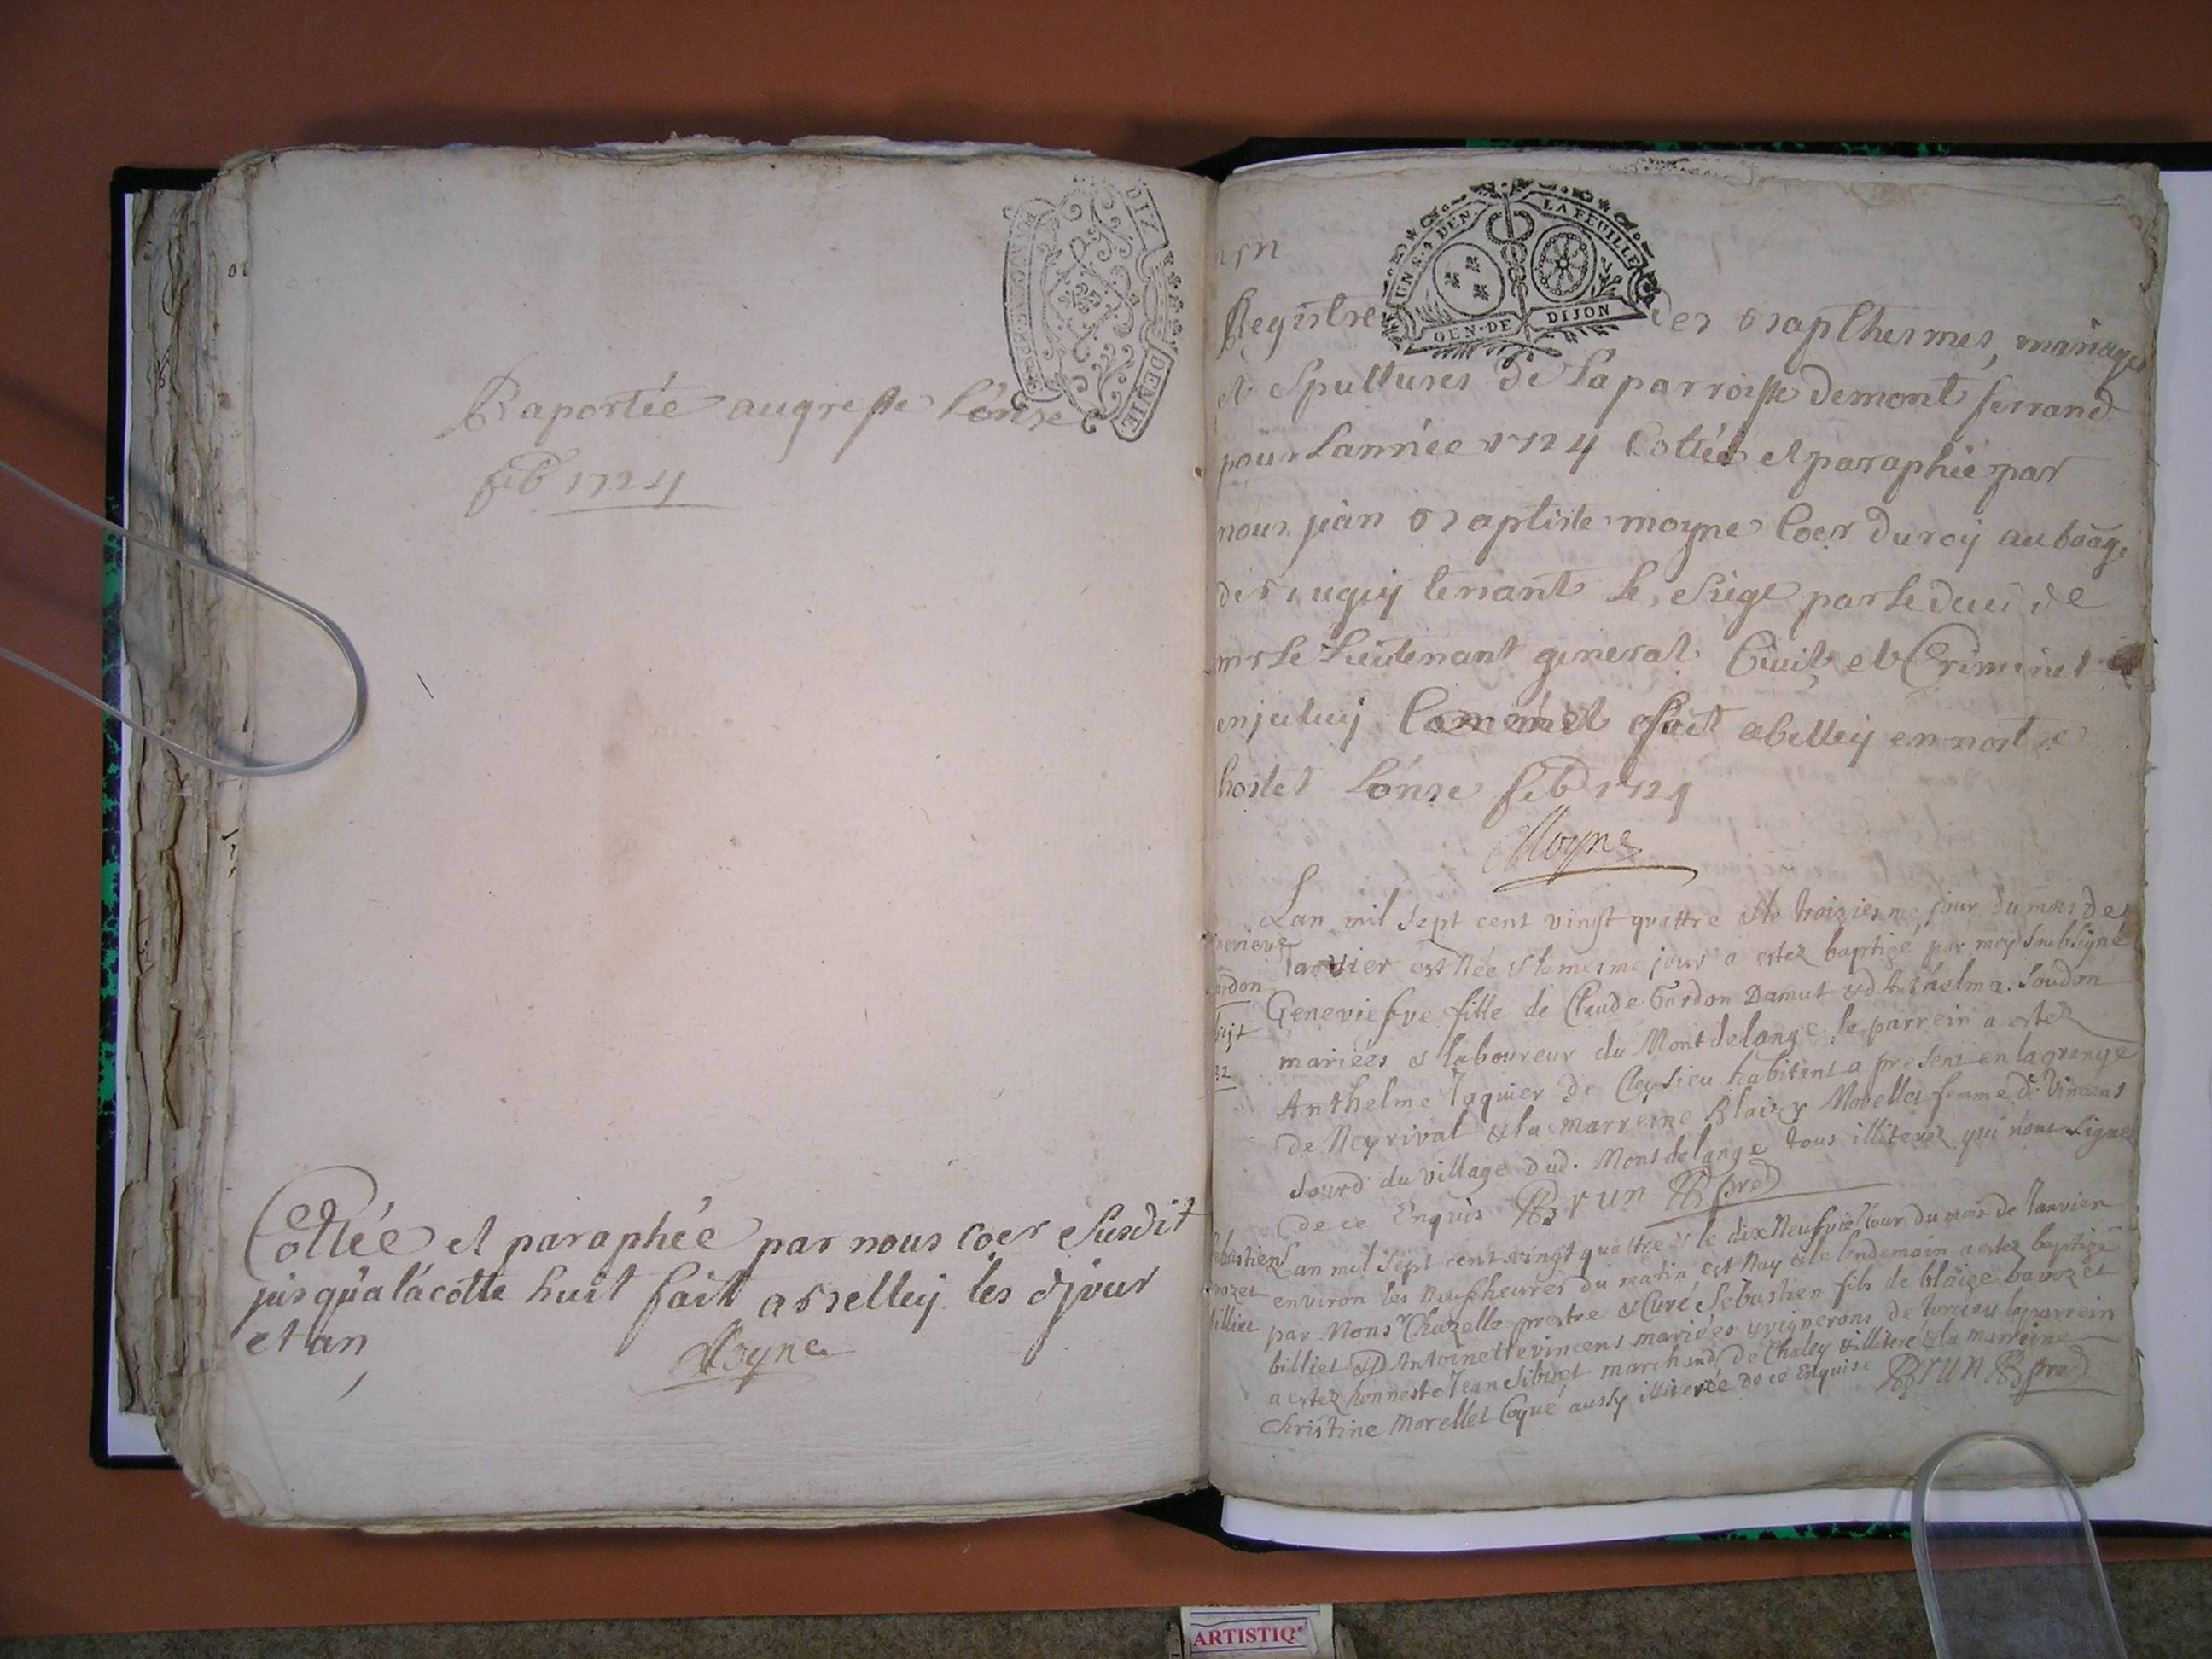 Raportée au greffe l'onze
feb 1724
Cottée et paraphée par nous coer susdit
jusqu'a la cotte huit fait a Belley les djour
et an
Moyne
UN S. 4 DEN. LA FEUILLE
GEN. DE DIJON
Registre des Bapthesmes, mariages
et Spultures de la parroisse de mont ferrand
pour Lannée 1724 Cottée et paraphée par
nous jean Baptiste moyne Coer du roy au baage
de Bugey tenant le siege par le deces de
mr le Lieutenant general Civil et Criminel
en jceluy fait a belley en nostre
hostel l'onze feb 1724
Moyne
Lan mil sept cent vingt quattre & le troiziesme jour du mois de
Janvier est Née & le mesme jour a estez baptizé par moy soubsigné
Geneviefve fille de Claude Gordon Damut & d'Anthelma Soudon
mariées & laboureur du Mont de lange le parrein a estez
Anthelme Jaquier de Cleysieu habitant a present en la grange
de Neyrival & la marreine Blaizy Morellet femme de Vincent
Sourd du village dud. Mont delange tous illiterez qui n'ont signez
de ce Enquis Brun pre
Lan mil sept cent vingt quattre & le dix Neufvie Jour du mois de Janvier
environ les neuf heures du matin est Nay & le lendemain a estez baptizé
par Monsr Chazelle prestre & Curé Sebastien fils de blaize bavozet
billiet & D'Antoinette vincent mariées & vignerons de Torcieu le parrein
a estez honneste Jean Sibuet marchand de Chaley & illiteré & la marreine
Christine Morellet Coqué aussy illiterée de ce Enquise Brun pre
nevieve
ordon
bastien
vozet
illiet
ARTISTIQ